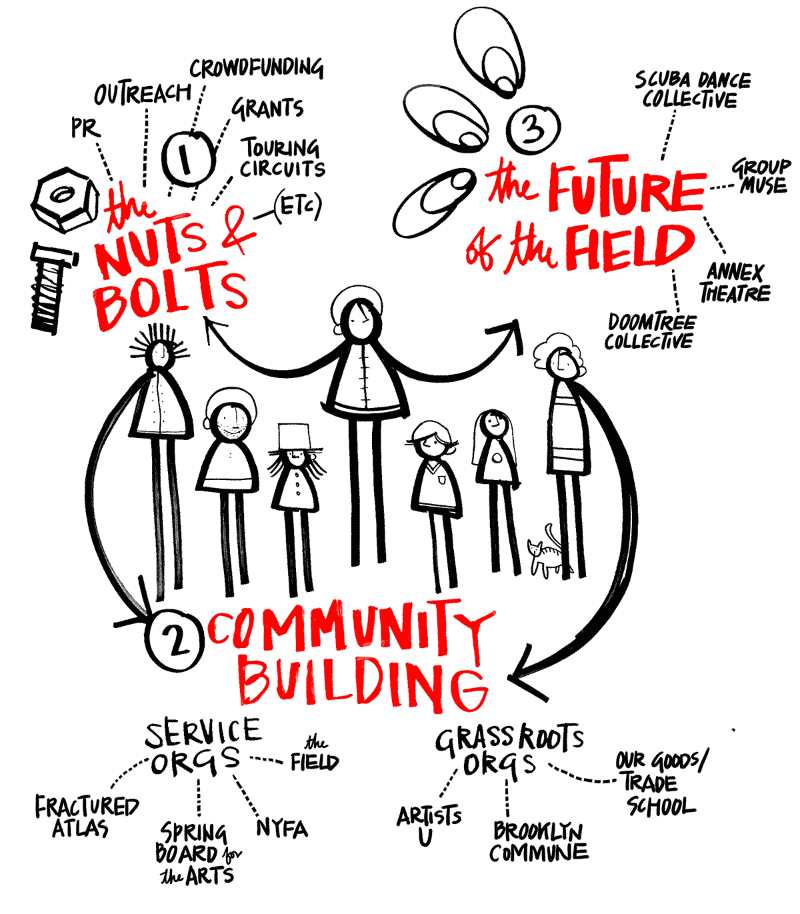 CROWDFUNDING
OUTREACH
GRANTS
PR
TOURING
CIRCUITS
(ETC)
1
the
NUTS &
BOLTS
3
the FUTURE
of the FIELD
SCUBA DANCE
COLLECTIVE
GROUP
MUSE
ANNEX
THEATRE
DOOMTREE
COLLECTIVE
2
COMMUNITY
BUILDING
SERVICE
ORGS
the
FIELD
FRACTURED
ATLAS
SPRING
BOARD for
the ARTS
NYFA
GRASSROOTS
ORGS
OUR GOODS/
TRADE
SCHOOL
ARTISTS
U
BROOKLYN
COMMUNE